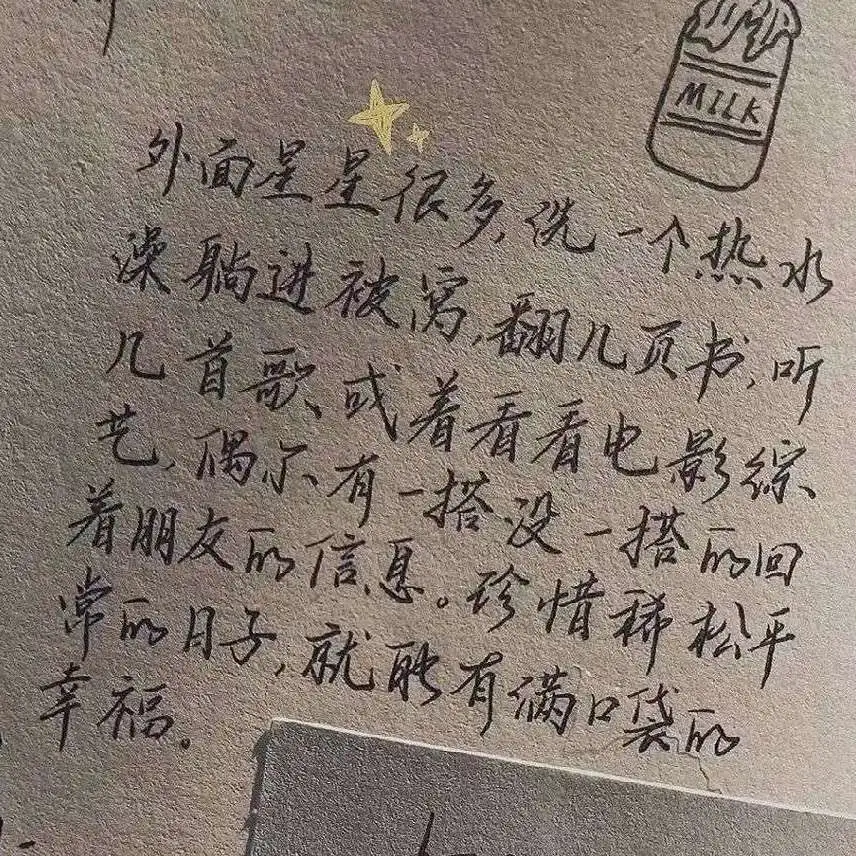 MILK
外面星星很多,洗一个热水
澡躺进被窝,翻几页书,听
几首歌、或着看看电影综
艺,偶尔有一搭没一搭的回
着朋友的信息。珍惜稀松平
常的日子,就能有满口袋的
幸福。